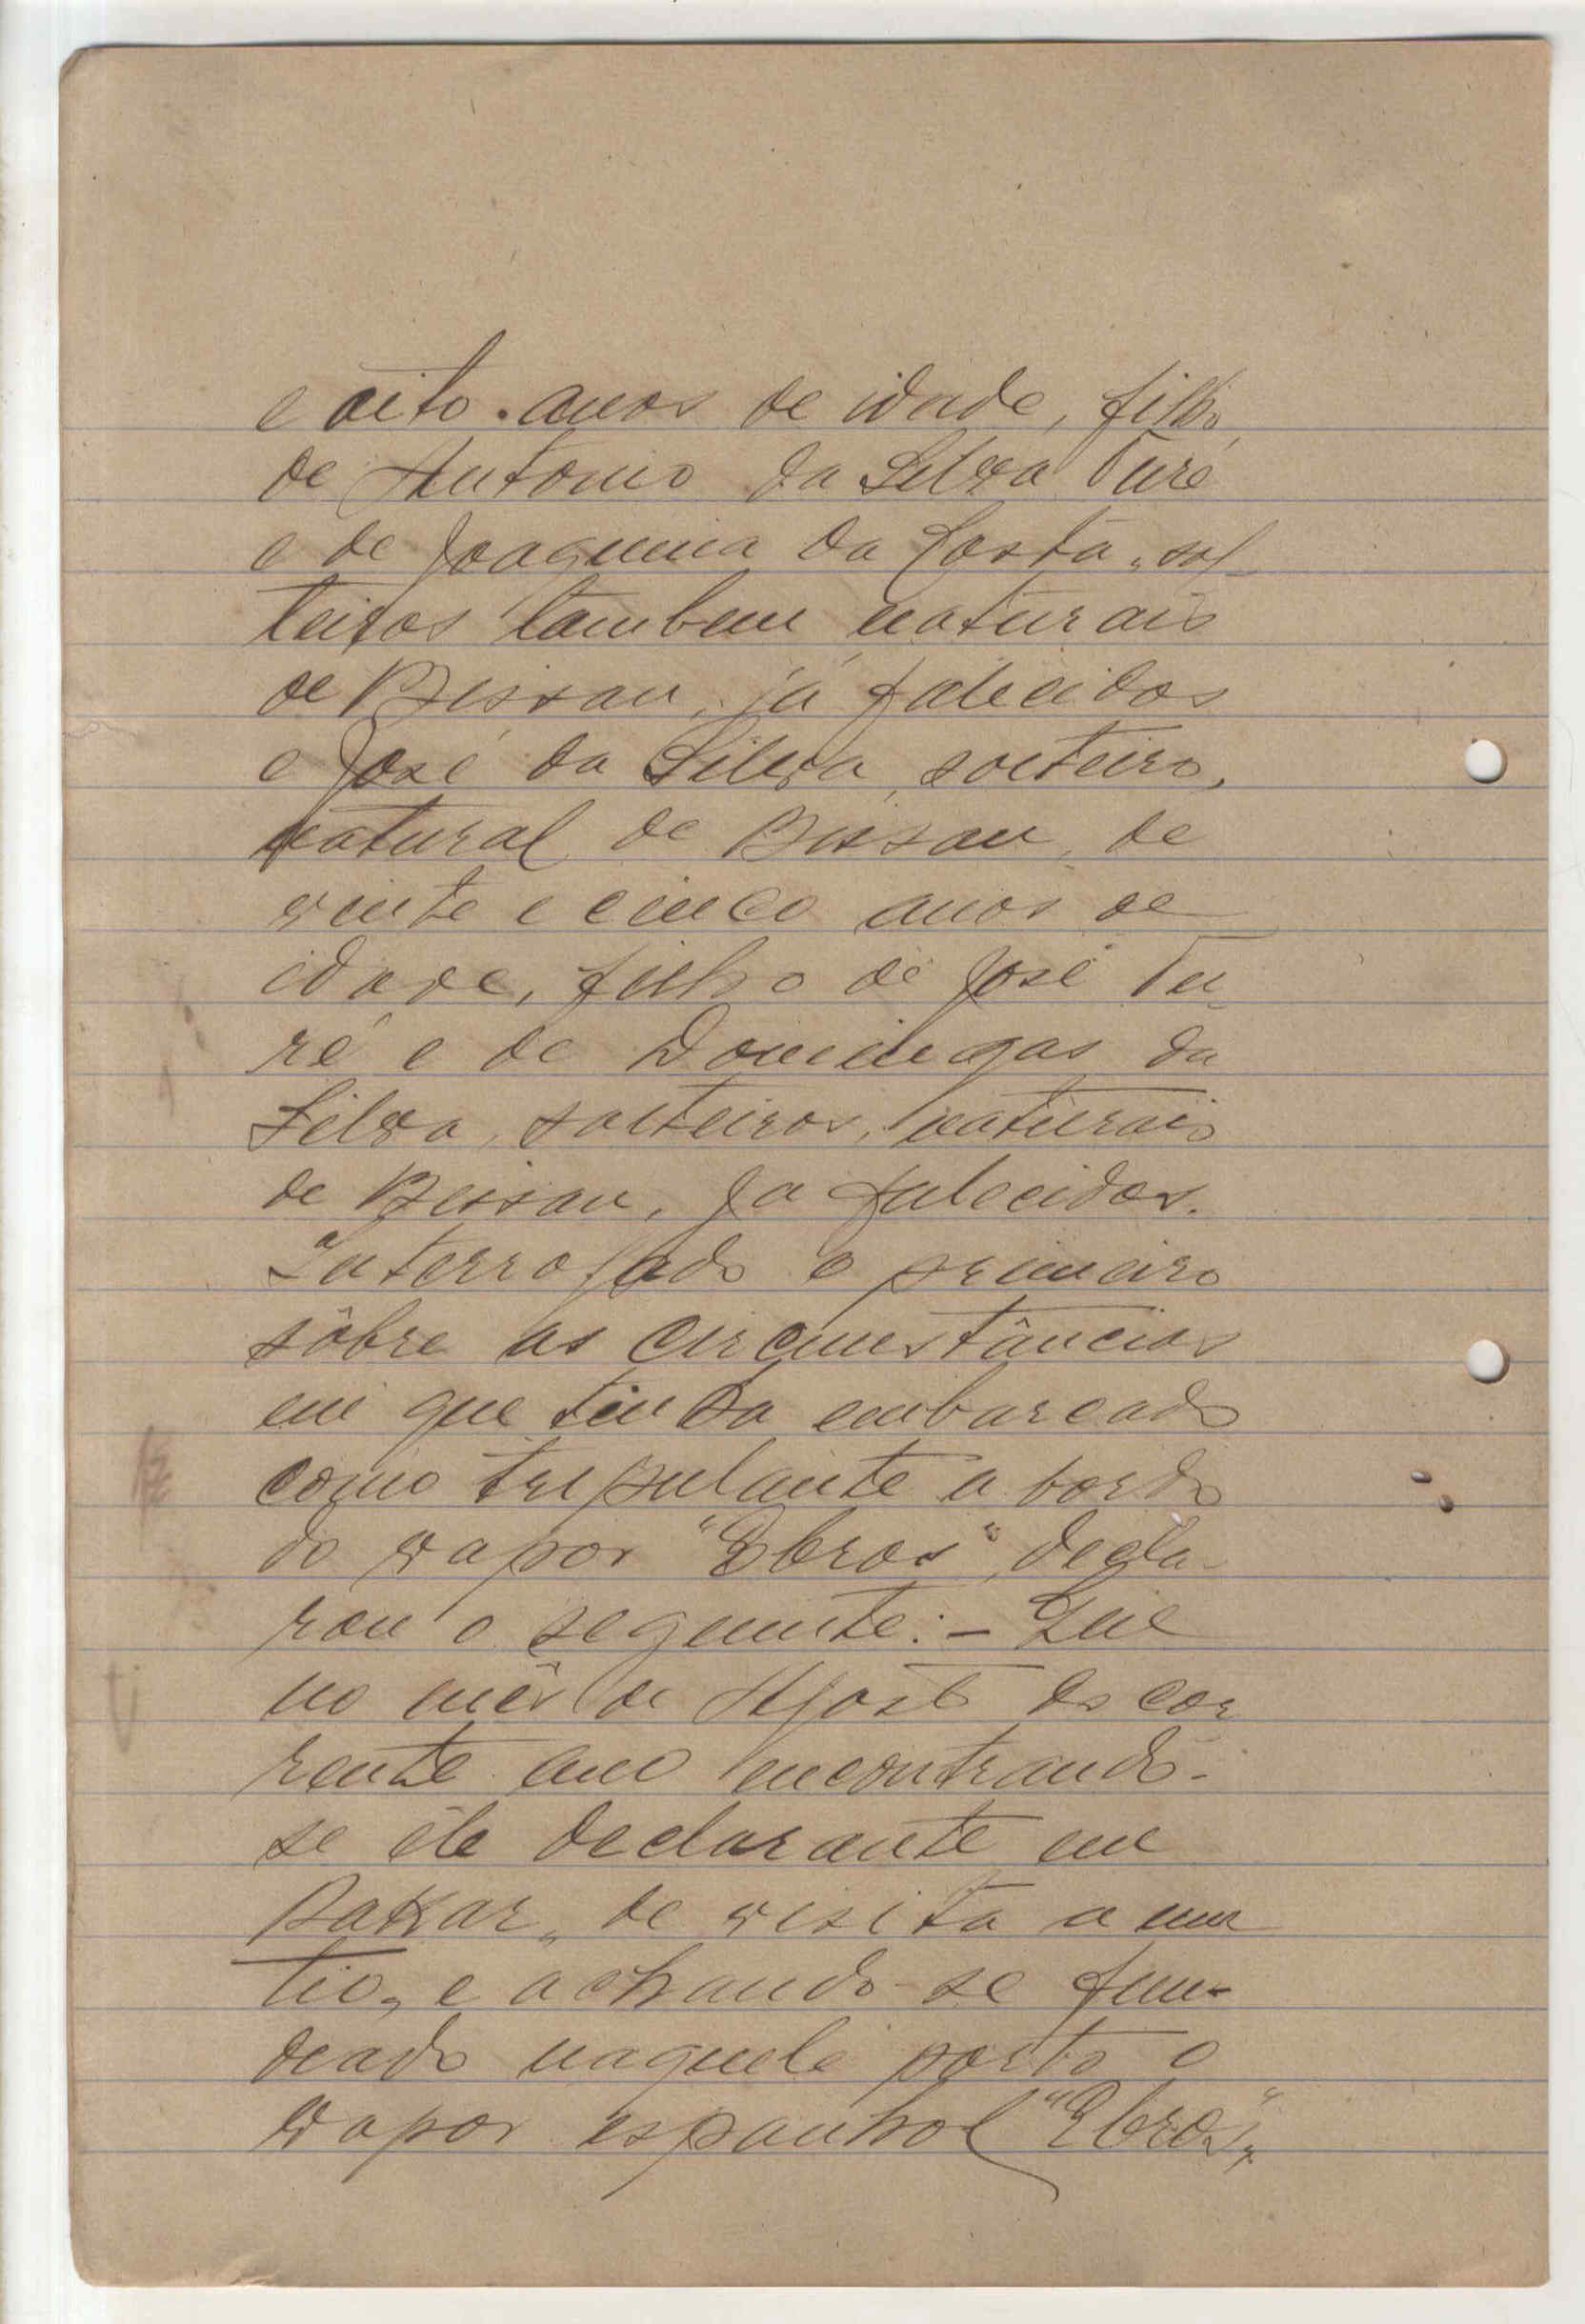 e oito anos de idade, filho
de Antonio da Silva Turé
e de Joaquina da Costa, sol-
teiros tambem naturais
de Bissau, já falecidos
e José da Silva, solteiro,
natural de Bissau, de
vinte e cinco anos de
idade, filho de José Tu-
ré e de Domingas da
Silva, solteiros, naturais
de Bissau, ja falecidos.
Interrogado o primeiro
sôbre as circunstâncias
em que tinha embarcado
como tripulante a bordo
do vapor "Ebros", decla-
rou o seguinte: - Que
no mês de Agosto do cor
rente ano encontrando-
se êle declarante em
Dakar, de visita a um
tio, e achando-se fun-
deado naquele porto o
vapor espanhol "Ebros",